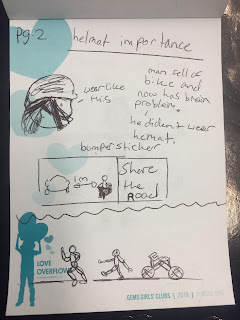 pg-2
helmet importance
man fell of
bike and
now has brain
problem.
he dident wear
hemat.
wear like
this
bumper sticker
1m
Share
the
Road
LOVE
OVERFLOW
GEMS GIRLS' CLUBS | 2018 |